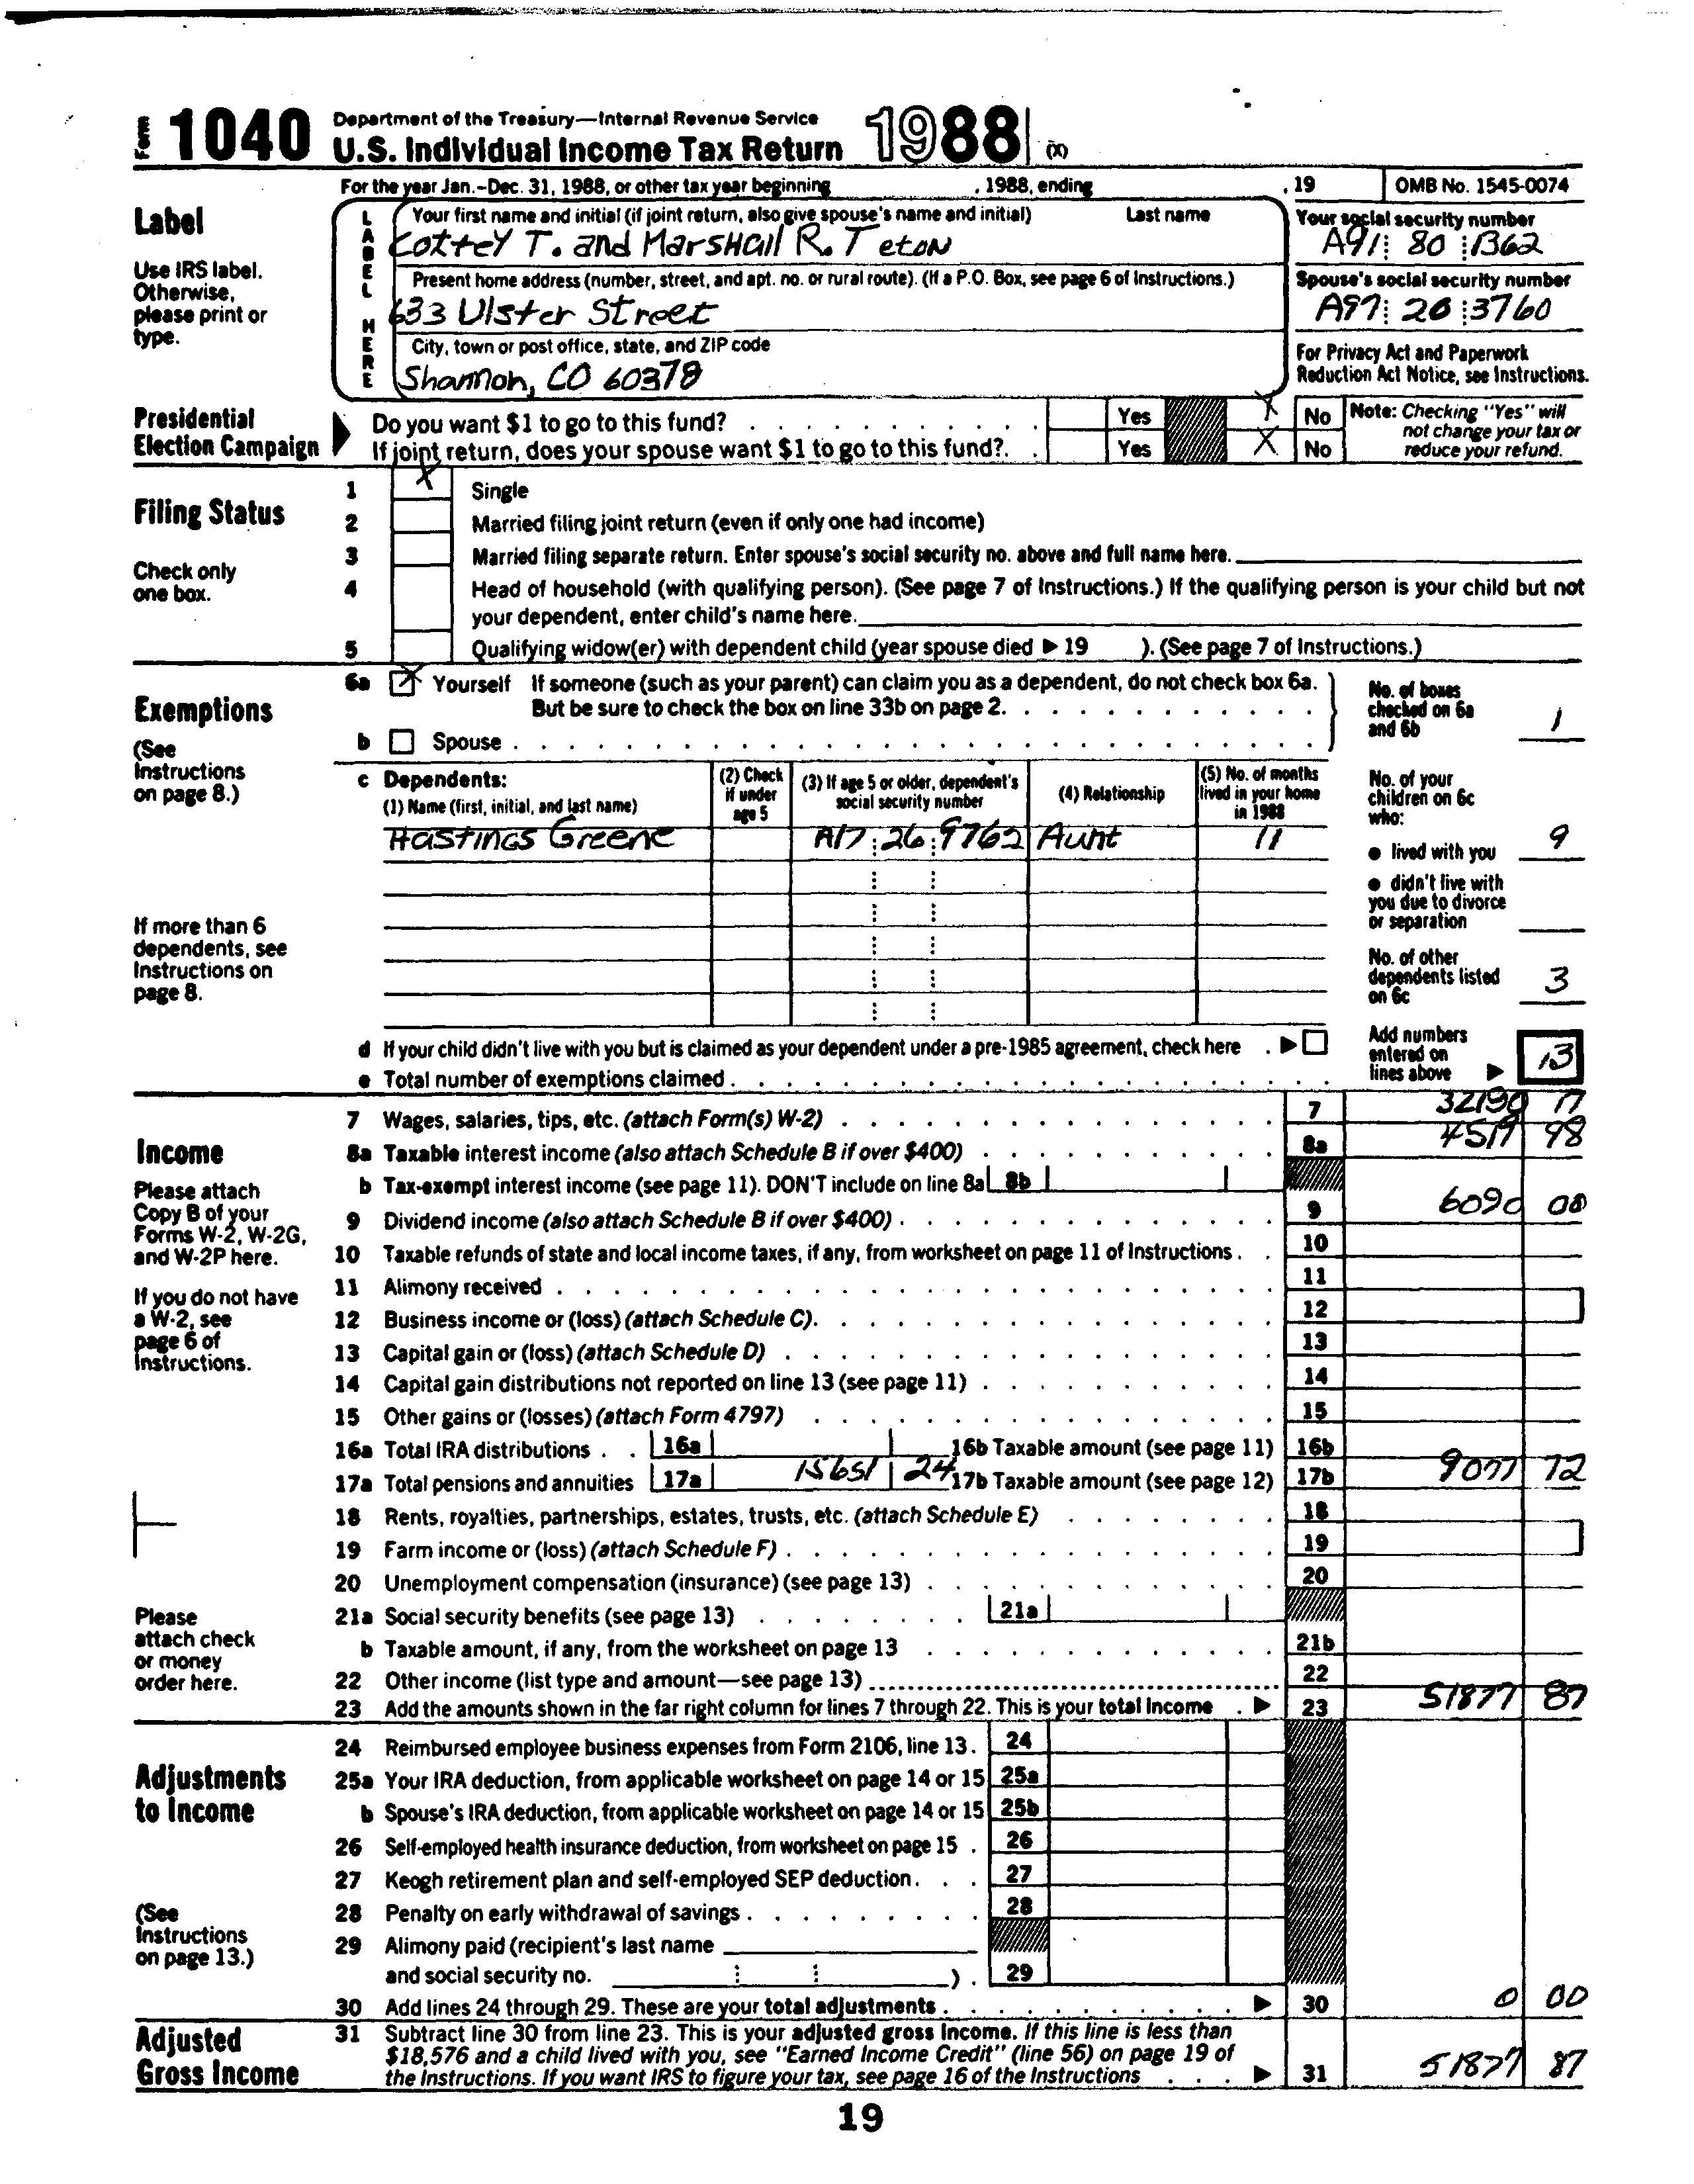 Form 1040 Department of the Treasury—Internal Revenue Service
U.S. Individual Income Tax Return 1988 (X)
For the year Jan.-Dec. 31, 1988, or other tax year beginning , 1988, ending , 19 OMB No. 1545-0074
Label
Use IRS label. Otherwise, please print or type.
LABEL HERE
Your first name and initial (if joint return, also give spouse's name and initial) Last name
Cottey T. and Marshall R. Teton
Your social security number
A91 80 1362
Present home address (number, street, and apt. no. or rural route). (If a P.O. Box, see page 6 of Instructions.)
633 Ulster Street
Spouse's social security number
A97 20 3760
City, town or post office, state, and ZIP code
Shannon, CO 60378
For Privacy Act and Paperwork Reduction Act Notice, see Instructions.
Presidential Election Campaign
Do you want $1 to go to this fund? Yes X No
If joint return, does your spouse want $1 to go to this fund? Yes X No
Note: Checking "Yes" will not change your tax or reduce your refund.
Filing Status
Check only one box.
1 X Single
2 Married filing joint return (even if only one had income)
3 Married filing separate return. Enter spouse's social security no. above and full name here.
4 Head of household (with qualifying person). (See page 7 of Instructions.) If the qualifying person is your child but not
your dependent, enter child's name here.
5 Qualifying widow(er) with dependent child (year spouse died ▶ 19 ). (See page 7 of Instructions.)
Exemptions
(See Instructions on page 8.)
6a X Yourself If someone (such as your parent) can claim you as a dependent, do not check box 6a.
But be sure to check the box on line 33b on page 2.
b Spouse
No. of boxes checked on 6a and 6b 1
c Dependents:
(1) Name (first, initial, and last name) (2) Check if under age 5 (3) If age 5 or older, dependent's social security number (4) Relationship (5) No. of months lived in your home in 1988
Hastings Greene A17 26 9762 Aunt 11
No. of your children on 6c who:
● lived with you 9
● didn't live with you due to divorce or separation
No. of other dependents listed on 6c 3
If more than 6 dependents, see Instructions on page 8.
d If your child didn't live with you but is claimed as your dependent under a pre-1985 agreement, check here ▶
e Total number of exemptions claimed
Add numbers entered on lines above ▶ 13
Income
Please attach Copy B of your Forms W-2, W-2G, and W-2P here.
If you do not have a W-2, see page 6 of Instructions.
7 Wages, salaries, tips, etc. (attach Form(s) W-2) 7 32190 17
8a Taxable interest income (also attach Schedule B if over $400) 8a 4519 98
b Tax-exempt interest income (see page 11). DON'T include on line 8a 8b
9 Dividend income (also attach Schedule B if over $400) 9 6090 00
10 Taxable refunds of state and local income taxes, if any, from worksheet on page 11 of Instructions 10
11 Alimony received 11
12 Business income or (loss) (attach Schedule C) 12
13 Capital gain or (loss) (attach Schedule D) 13
14 Capital gain distributions not reported on line 13 (see page 11) 14
15 Other gains or (losses) (attach Form 4797) 15
16a Total IRA distributions 16a 16b Taxable amount (see page 11) 16b
17a Total pensions and annuities 17a 15651 24 17b Taxable amount (see page 12) 17b 9077 72
18 Rents, royalties, partnerships, estates, trusts, etc. (attach Schedule E) 18
19 Farm income or (loss) (attach Schedule F) 19
20 Unemployment compensation (insurance) (see page 13) 20
21a Social security benefits (see page 13) 21a
b Taxable amount, if any, from the worksheet on page 13 21b
22 Other income (list type and amount—see page 13) 22
23 Add the amounts shown in the far right column for lines 7 through 22. This is your total income ▶ 23 51877 87
Please attach check or money order here.
Adjustments to Income
(See Instructions on page 13.)
24 Reimbursed employee business expenses from Form 2106, line 13 24
25a Your IRA deduction, from applicable worksheet on page 14 or 15 25a
b Spouse's IRA deduction, from applicable worksheet on page 14 or 15 25b
26 Self-employed health insurance deduction, from worksheet on page 15 26
27 Keogh retirement plan and self-employed SEP deduction 27
28 Penalty on early withdrawal of savings 28
29 Alimony paid (recipient's last name
and social security no. ) 29
30 Add lines 24 through 29. These are your total adjustments ▶ 30 0 00
Adjusted Gross Income
31 Subtract line 30 from line 23. This is your adjusted gross income. If this line is less than
$18,576 and a child lived with you, see "Earned Income Credit" (line 56) on page 19 of
the Instructions. If you want IRS to figure your tax, see page 16 of the Instructions ▶ 31 51877 87
19